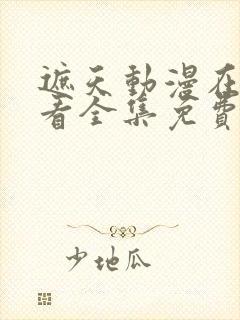 遮天動漫在
看全集免費
少地瓜